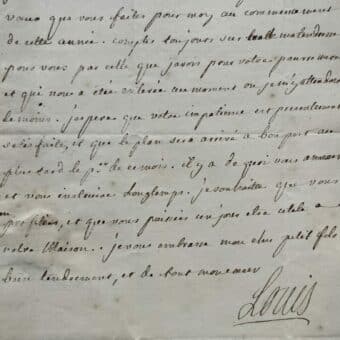 vœux que vous faites pour moy au commencement
de cette année. comptés toujours sur toutte ma tendresse
pour vous par celle que j'avois pour votre pauvre
et qui nous a été enlevée au moment ou je m'y attendois
le moins. j'espere que votre impatience est presentement
satisfaite, et que le plan sera arrivé a bon port au
plus tard le p.er de ce mois. il y a de quoi vous amuser
et vous instruire longtemps. je souhaitte que vous
profitiés, et que vous puissiés un jour etre utile a
notre Maison. je vous embrasse mon cher petit fils
bien tendrement, et de tout mon cœur
Louis